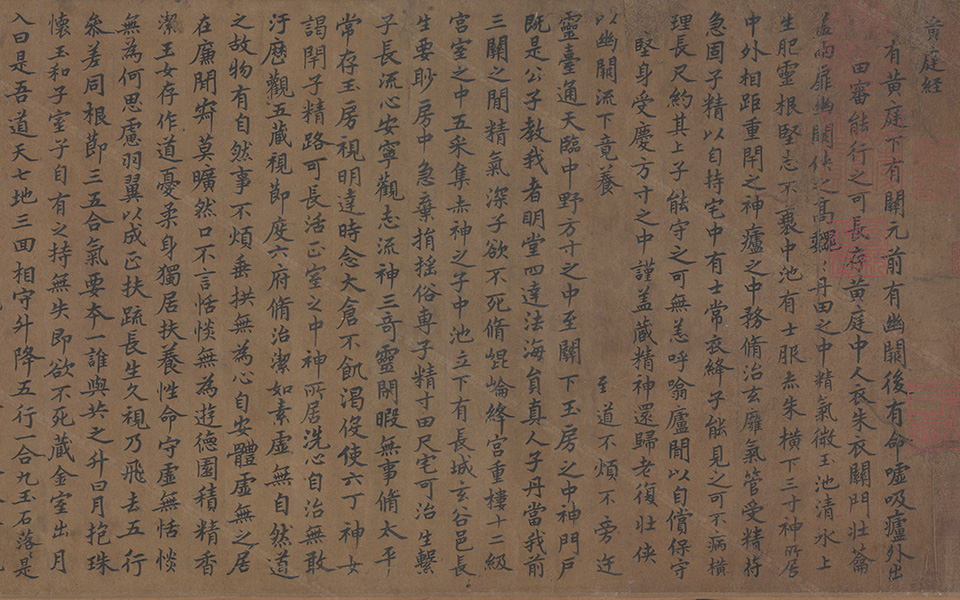 黄庭経
有黄庭下有關元前有幽闕後有命嘘吸廬外出
田審能行之可長存黄庭中人衣朱衣關門壮籥
盖兩扉幽闕侠之高巍巍丹田之中精氣微玉池清水上
生肥靈根堅志不衰中池有士服赤朱横下三寸神所居
中外相距重閇之神廬之中務脩治玄膺氣管受精符
急固子精以自持宅中有士常衣絳子能見之可不病横
理長尺約其上子能守之可無恙呼噏廬間以自償保守
堅身受慶方寸之中謹盖藏精神還歸老復壮侠
以幽闕流下竟養 至道不煩不旁迕
靈臺通天臨中野方寸之中至關下玉房之中神門戸
既是公子教我者明堂四達法海員真人子丹當我前
三關之間精氣深子欲不死脩崐崘絳宫重樓十二級
宫室之中五采集赤神之子中池立下有長城玄谷邑長
生要眇房中急棄捐揺俗専子精寸田尺宅可治生繫
子長流心安寧觀志流神三奇靈閇暇無事脩太平
常存玉房視明達時念大倉不飢渇役使六丁神女
謁閇子精路可長活正室之中神所居洗心自治無敢
汙歴觀五藏視節度六府脩治潔如素虚無自然道
之故物有自然事不煩垂拱無為心自安體虚無之居
在廉間寂莫曠然口不言恬惔無為遊德園積精香
潔玉女存作道憂柔身獨居扶養性命守虚無恬惔
無為何思慮羽翼以成正扶疏長生久視乃飛去五行
参差同根節三五合氣要本一誰與共之升日月抱珠
懷玉和子室子自有之持無失即欲不死藏金室出月
入日是吾道天七地三回相守升降五行一合九玉石落落是